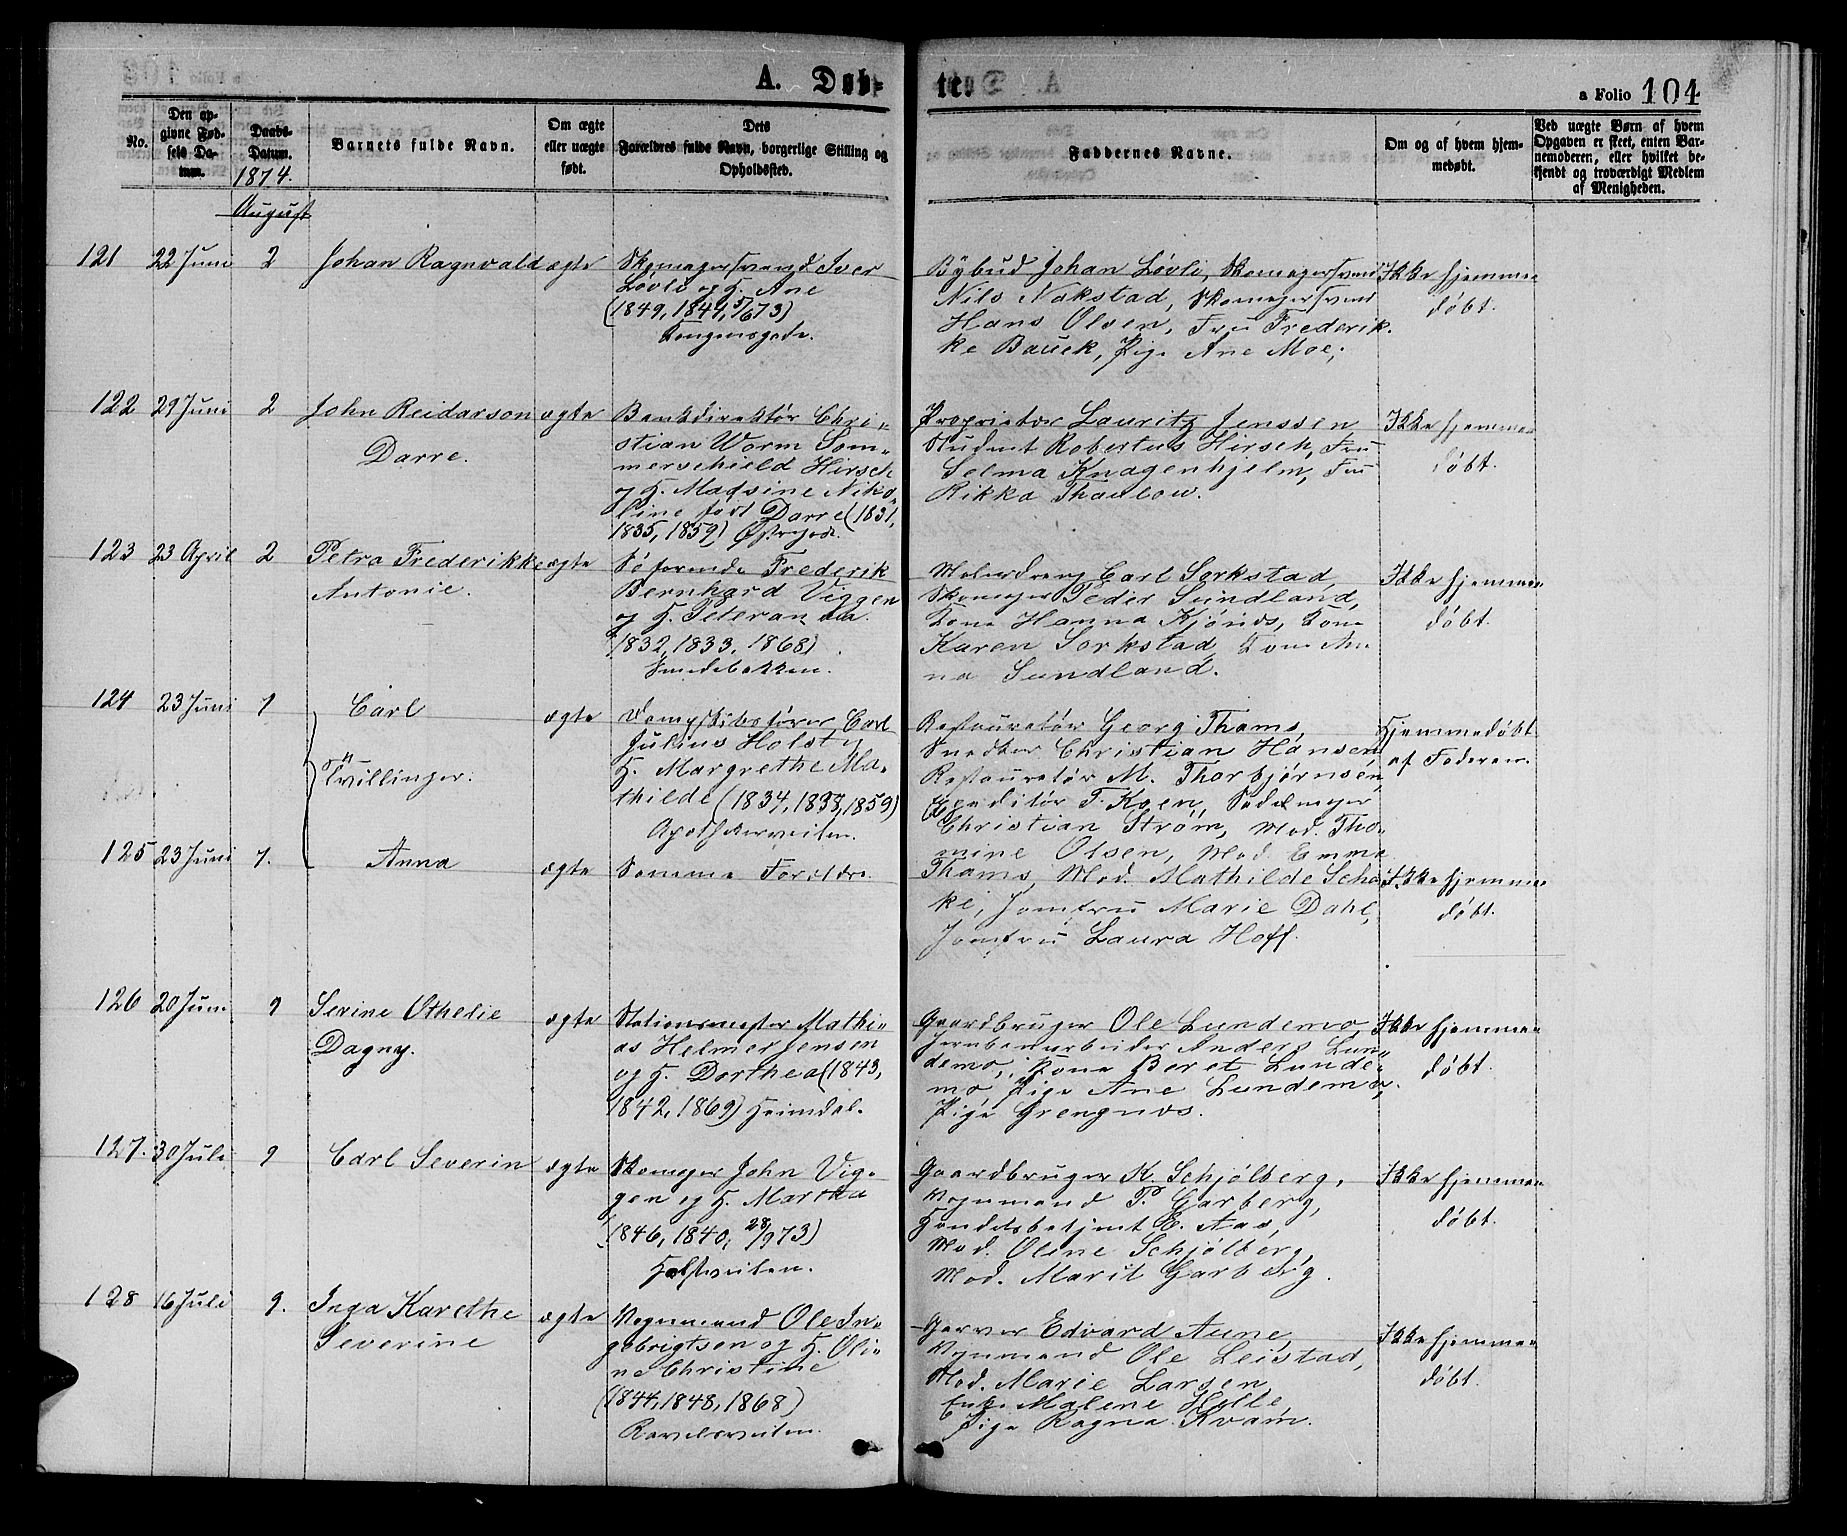 A. Døb-
te.
a Folio 104
No.
Den op-
givne Fød-
sels Da-
tum.
Daabs-
Datum.
1874.
Barnets fulde Navn.
Om ægte
eller uægte
født.
Dets
Forældres fulde Navn, borgerlige Stilling og
Opholdssted.
Faddernes Navne.
Om og af hvem hjem-
medøbt.
Ved uægte Børn af hvem
Opgaven er skeet, enten Bar-
nemoderen, eller hvilket be-
kjendt og troværdigt Medlem
af Menigheden.
August
121 22 Juni 2 Johan Ragnvald ægte
Skomagersvend Iver
Løvli og H. Ane
(1849, 1849, 5/6 73)
Kongensgade.
Bybud Johan Løvli, Skomagersvend
Nils Nakstad, Skomagersvend
Hans Olsen, Fru Frederik-
ke Bauck, Pige Ane Moe,
Ikke hjemme
døbt.
122 29 Juni 2 John Reidarson
Darre.
ægte
Bankdirektør Chri-
stian Worm Som-
merschield Hirsch
og H. Madsine Niko-
line født Darre (1831,
1835, 1859) Østregade.
Proprietær Lauritz Jenssen
Student Robertus Hirsch, Fru
Selma Knagenhjelm, Fru
Rikka Thaulow.
Ikke hjemme
døbt.
123 23 April 2 Petra Frederikke
Antonie.
ægte
Søfarende Frederik
Bernhard Viggen
og H. Peteranna
(1832, 1833, 1868)
Smedebakken.
Malerdreng Carl Sorkstad
Skomager Peder Sundland,
Kone Hanna Kjønøs, Kone
Karen Sorkstad, Kone An-
na Sundland.
Ikke hjemme
døbt.
124 23 Juni 7 Carl
Tvillinger.
ægte
Dampskibsfører Carl
Julius Holst og
H. Margrethe Ma-
thilde (1834, 1838, 1859)
Apothekerveiten.
Restauratør Georg Thams,
Snedker Christian Hansen,
Restauratør M. Thorbjørnsen,
Expeditør F. Koen, Sadelmager
Christian Strøm, Mad. Tho-
mine Olsen, Mad. Emma
Hjemmedøbt
af Faderen.
125 23 Juni 7. Anna ægte Samme Forældre.
Thams, Mad. Mathilde Scha
ke, Jomfru Marie Dahl,
Jomfru Laura Hoff.
Ikke hjemme
døbt.
126 20 Juni 9 Serine Othelie
Dagny.
ægte
Stationsmester Mathi-
as Helmer Jensen
og H. Dorthea (1843,
1842, 1869) Heimdal.
Gaardbruger Ole Lundemo,
Jernbanarbeider Anders Lun-
demo, Kone Beret Lunde-
mo, Pige Ane Lundemo,
Pige Grengnøs.
Ikke hjemme
døbt.
127. 30 Juli 9 Carl Severin ægte
Skomager John Vig-
gen og H. Martha
(1846, 1840, 28/9 73)
Holstveiten.
Gaardbruger K. Schjølberg,
Vognmand P. Garberg,
Handelsbetjent C. Aas,
Mad. Oline Schjølberg,
Mad. Marit Garberg.
Ikke hjemme
døbt.
128 16 Juli 9. Inga Karethe
Severine
ægte
Vognmand Ole In-
gebrigtsen og H. Oli-
ne Christine
(1844, 1848, 1868)
Ravelsveiten.
Garver Edvard Aune,
Vognmand Ole Leistad,
Mad. Marie Larsen
Enke Malene Holte,
Pige Ragna Kvam.
Ikke hjemme
døbt.